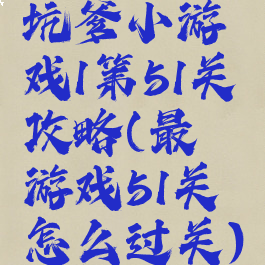 坑爹小游
戏1第51关
攻略(最
游戏51关
怎么过关)